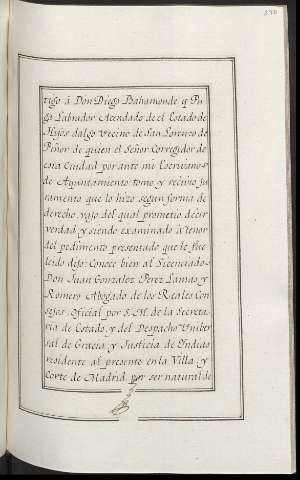 tigo á Don Diego Bahamonde y Pa-
go Labrador Acendado de el Estado de
Hijos dalgo vecino de San Lorenzo de
Piñor de quien el Señor Corregidor de
esta Ciudad por ante mi Escrivano
de Ayuntamiento tomo y recivio ju
ramento que lo hizo segun forma de
derecho, vajo del qual prometio decir
verdad y siendo examinado á tenor
del pedimento presentado que le fue
leido dijo: Conoce bien al Licenciado
Don Juan Gonzalez Perez Lamas y
Romero Abogado de los Reales Con
sejos, Oficial por S. M. de la Secreta
ria de Estado, y del Despacho Univer
sal de Gracia, y Justicia de Yndias
residente al presente en la Villa, y
Corte de Madrid por ser natural de